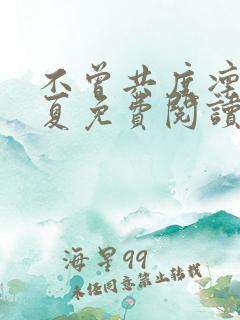 不曾共度凛
夏免費閱讀
海星99
未经同意禁止转载